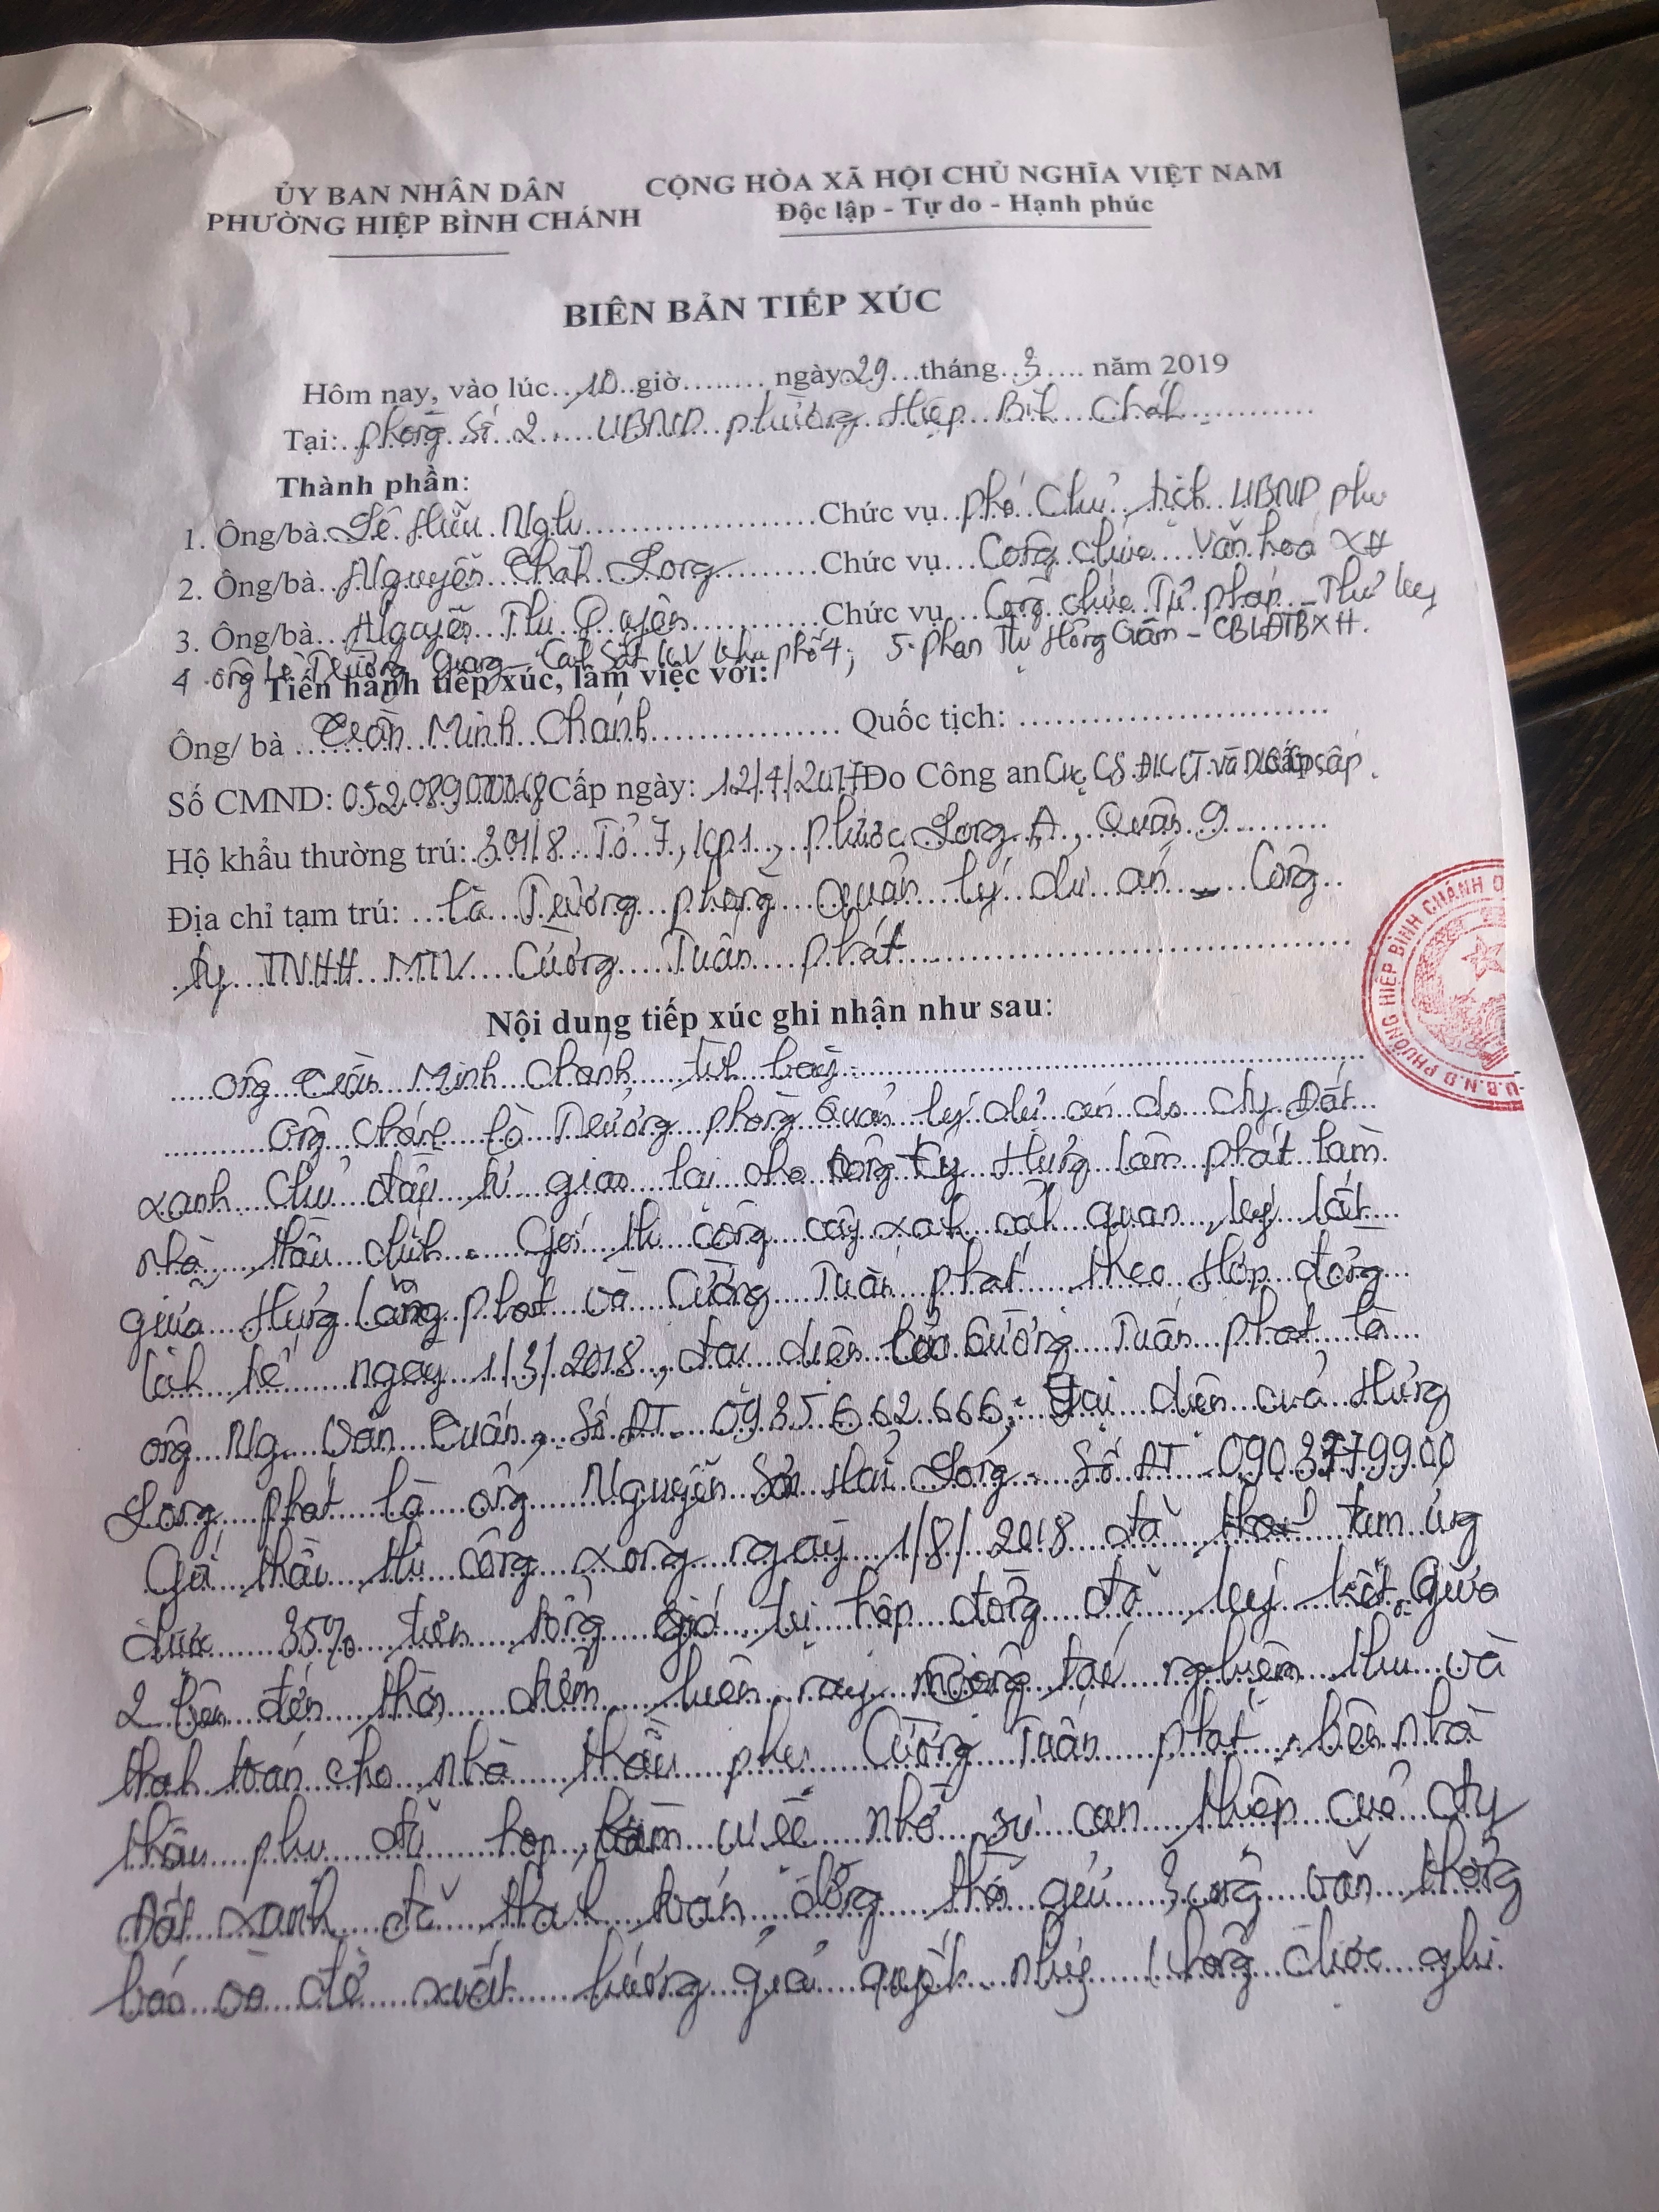 ỦY BAN NHÂN DÂN
PHƯỜNG HIỆP BÌNH CHÁNH
CỘNG HÒA XÃ HỘI CHỦ NGHĨA VIỆT NAM
Độc lập - Tự do - Hạnh phúc
BIÊN BẢN TIẾP XÚC
Hôm nay, vào lúc 10 giờ ngày 29 tháng 3 năm 2019
Tại: phòng số 2 UBND phường Hiệp Bình Chánh
Thành phần:
1. Ông/bà Lê Hữu Chức vụ phó Chủ tịch UBND
2. Ông/bà Nguyễn Thành Long Chức vụ Công chức Văn hóa XH
3. Ông/bà Nguyễn Thị Quyên Chức vụ Công chức Tư pháp - Thư ký
4 ông Lê Trường Giang - Cảnh sát KV khu phố 4; 5. Phan Thị Hồng Gấm - CBLĐTBXH.
Tiến hành tiếp xúc, làm việc với:
Ông/ bà Trần Minh Chánh Quốc tịch:
Số CMND: Cấp ngày: 12/4/2017 Do Công an Cục CS ĐK CT và cấp.
Hộ khẩu thường trú: 301/8 Tổ 7, kp1, phước Long A, Quận 9
Địa chỉ tạm trú: là Trưởng phòng quản lý dự án - Công
ty TNHH MTV Cường Tuấn phát
Nội dung tiếp xúc ghi nhận như sau:
Ông Trần Minh Chánh trình bày:
Ông Chánh là Trưởng phòng Quản lý dự án do cty Đất
xanh chủ đầu tư giao lại cho công ty Hưng lâm phát làm
nhà thầu chính. Gói thi công cây xanh cảnh quan ký kết
giữa Hưng phát và Cường Tuấn phát theo Hợp đồng
kinh tế ngày 1/3/2018, đại diện Cường Tuấn phát là
ông Ng. Văn Tuấn, Số ĐT 0935662666; Đại diện của Hưng
Long phát là ông Nguyễn Sơn Hải Long. Số ĐT
Gói thầu thi công xong ngày 1/8/2018 đã tạm ứng
được 35% trên tổng giá trị hợp đồng đã ký kết. Giữa
2 bên đến thời điểm hiện nay nghiệm thu và
thanh toán cho nhà thầu phụ Cường Tuấn phát, bên nhà
thầu phụ đã họp, làm việc nhờ sự can thiệp của cty
Đất xanh đã thanh toán, đồng thời gửi 3 công văn thông
báo và đề xuất hướng giải quyết nhưng không được ghi